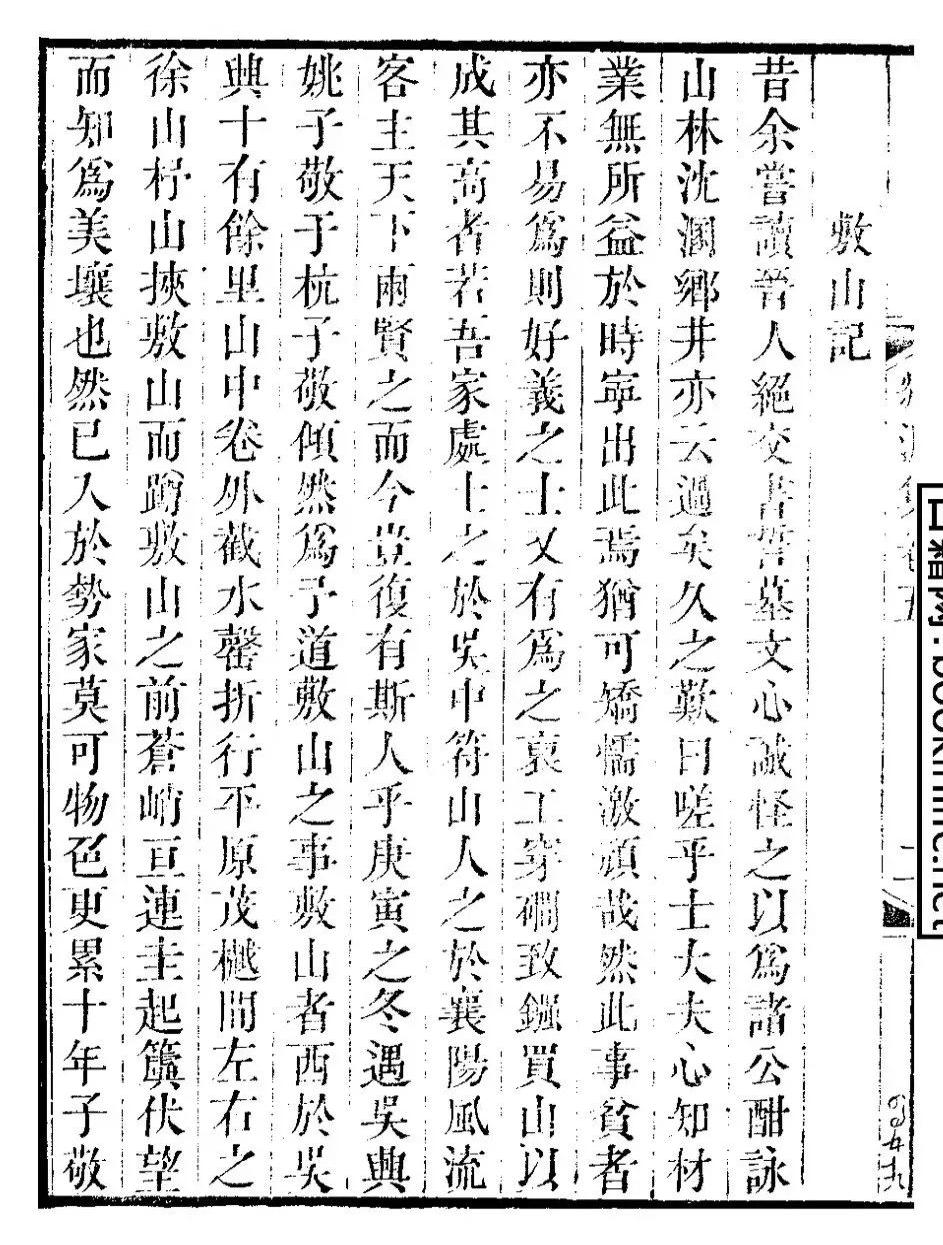 敷山記
昔余嘗讀晉人絕交書誓墓文心誠怪之以爲諸公酣詠
山林沈溷鄉井亦云過矣久之歎曰嗟乎士大夫心知材
業無所益於時寧出此焉猶可矯懦激頑哉然此事貧者
亦不易爲則好義之士又有爲之裒工穿礀致鏹買山以
成其高者若吾家處士之於吳中符山人之於襄陽風流
客主天下兩賢之而今豈復有斯人乎庚寅之冬遇吳興
姚子敬于杭子敬傾然爲予道敷山之事敷山者西於吳
興十有餘里山中卷外截水罄折行平原茂樾間左右之
徐山杼山挾敷山而蹲敷山之前蒼峭亘連圭起伏望
而知爲美壤也然已入於勢家莫可物色更累十年子敬